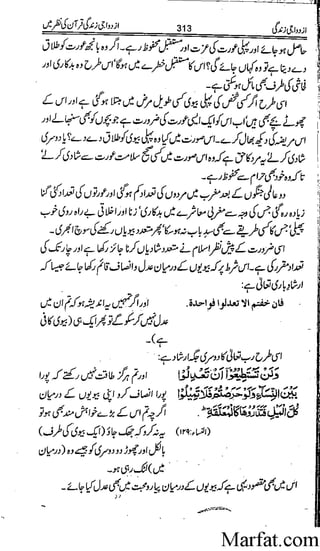 ازدواجی زندگی 313 ازدواجی زندگی قرآن کی نظر میں
حاصل ہو جائے اور پہلی عورت کی عزت اور مستقبل محفوظ رہے۔ اگر وہ بانجھ عورت کو طلاق
دے دیتا ہے تو وہ کہاں جائے گی؟ اس کا مستقبل خطرے میں ہوگا اس طرح وہ بدکاری اور
فاشی کی طرف بھی مائل ہو سکتی ہے۔
اسی طرح اگر کسی شخص کی پہلی بیوی کسی طویل مرض میں مبتلا ہو گئی ہے اور اس کے
چھوٹے بچے بھی ہیں اب اس کو ایک ایسی عورت کی ضرورت ہے جو بچوں کو بھی سنبھالے اور
اس مریضہ کی دیکھ بھال کرے۔ اس صورت میں کیا وہ پہلی بیوی کو طلاق دے دے؟ یا دوسری
شادی کرلے یہ مرد کا حق ہے کہ وہ اس صورت میں کسی صحیح سلامت عورت سے شادی کرلے
تا کہ وہ خود بھی حرام سے محفوظ رہے۔
دو عالمی جنگوں کے بعد مغرب میں مردوں کی تعداد کم ہو گئی اور عورتوں کی تعداد کئی گنا
زیادہ رہ گئی جس کی وجہ سے مغربی معاشرے میں بدکاری زنا اور اخلاقی بے راہ روی خوب
پھیلی جس کا کسی طریقے سے بھی سد باب نہ ہو سکا پھر متعدد بیویاں رکھنے کی سوچ ابھری۔
اسی ضرورت کے پیش نظر اسلام نے متعدد شادیاں کرنا جائز رکھا ہے اور چار تک کی
تعداد مقرر کی ہے۔ اس شرط پر کہ بیویوں کے درمیان عدل و انصاف قائم رکھا جائے جیسا کہ
ارشاد باری تعالیٰ ہے:
فان خفتم الا تعدلوا فواحدۃ۔ اور اگر تمہیں یہ اندیشہ ہو کہ تم ان میں
عدل نہیں کر سکو گے تو پھر ایک ہی (بیوی کافی
ہے)۔
اسی طرح رب تعالیٰ کا دوسری جگہ ارشاد ہے:
وَلَنْ تَسْتَطِيْعُوْٓا اَنْ تَعْدِلُوْا اور تم ہرگز طاقت نہیں رکھتے کہ پورا
بَيْنَ النِّسَآءِ وَلَوْ حَرَصْتُمْ فَلَا تَمِيْلُوْا پورا انصاف کرو اپنی بیویوں کے درمیان
كُلَّ الْمَيْلِ فَتَذَرُوْهَا كَالْمُعَلَّقَةِ ؕ اگرچہ تم اس کے بڑے خواہش مند بھی ہو تو
(النساء: ۱۲۹) یہ نہ کرو کہ جھک جاؤ (ایک بیوی کی طرف)
بالکل اور چھوڑ دو دوسری کو جیسے وہ (درمیان
میں) لٹک رہی ہو۔
اس میں بھی مقصود یہی ہے کہ بیویوں کے درمیان پیار و محبت میں بھی عدل کیا جائے۔
Marfat.com